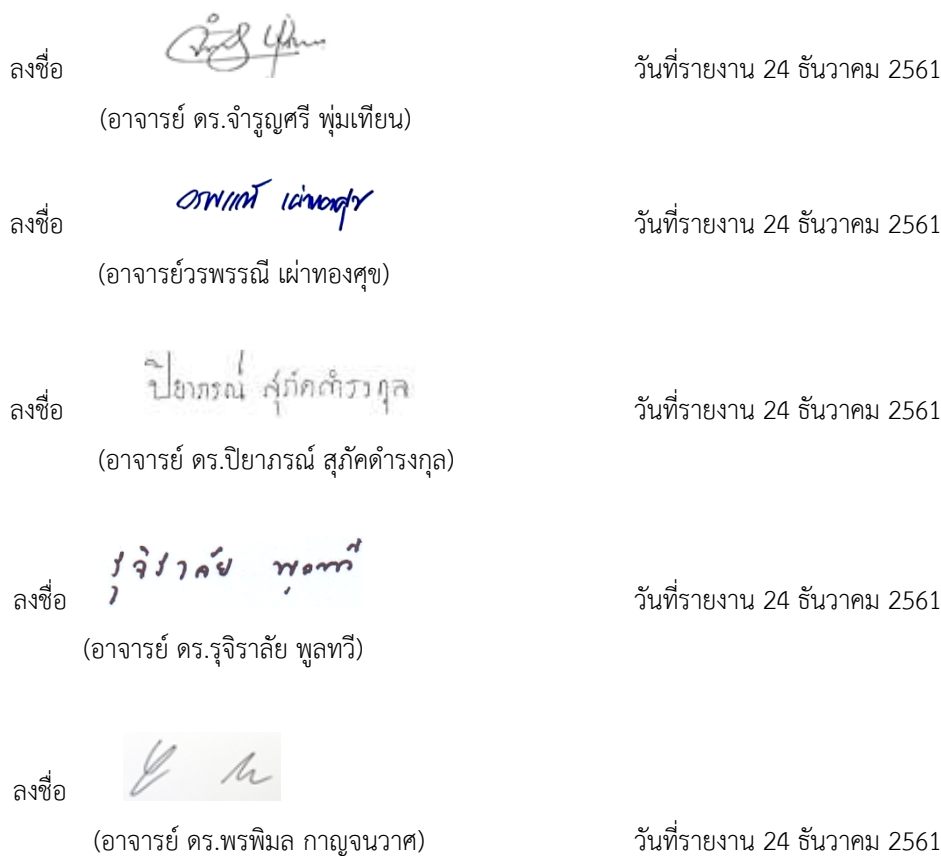 ลงชื่อ วันที่รายงาน 24 ธันวาคม 2561
(อาจารย์ ดร.จำรูญศรี พุ่มเทียน)
วรพรรณี เผ่าทองศุข
ลงชื่อ วันที่รายงาน 24 ธันวาคม 2561
(อาจารย์วรพรรณี เผ่าทองศุข)
ปิยาภรณ์ สุภัคดำรงกุล
ลงชื่อ วันที่รายงาน 24 ธันวาคม 2561
(อาจารย์ ดร.ปิยาภรณ์ สุภัคดำรงกุล)
รุจิราลัย พูลทวี
ลงชื่อ วันที่รายงาน 24 ธันวาคม 2561
(อาจารย์ ดร.รุจิราลัย พูลทวี)
ลงชื่อ
(อาจารย์ ดร.พรพิมล กาญจนวาศ) วันที่รายงาน 24 ธันวาคม 2561